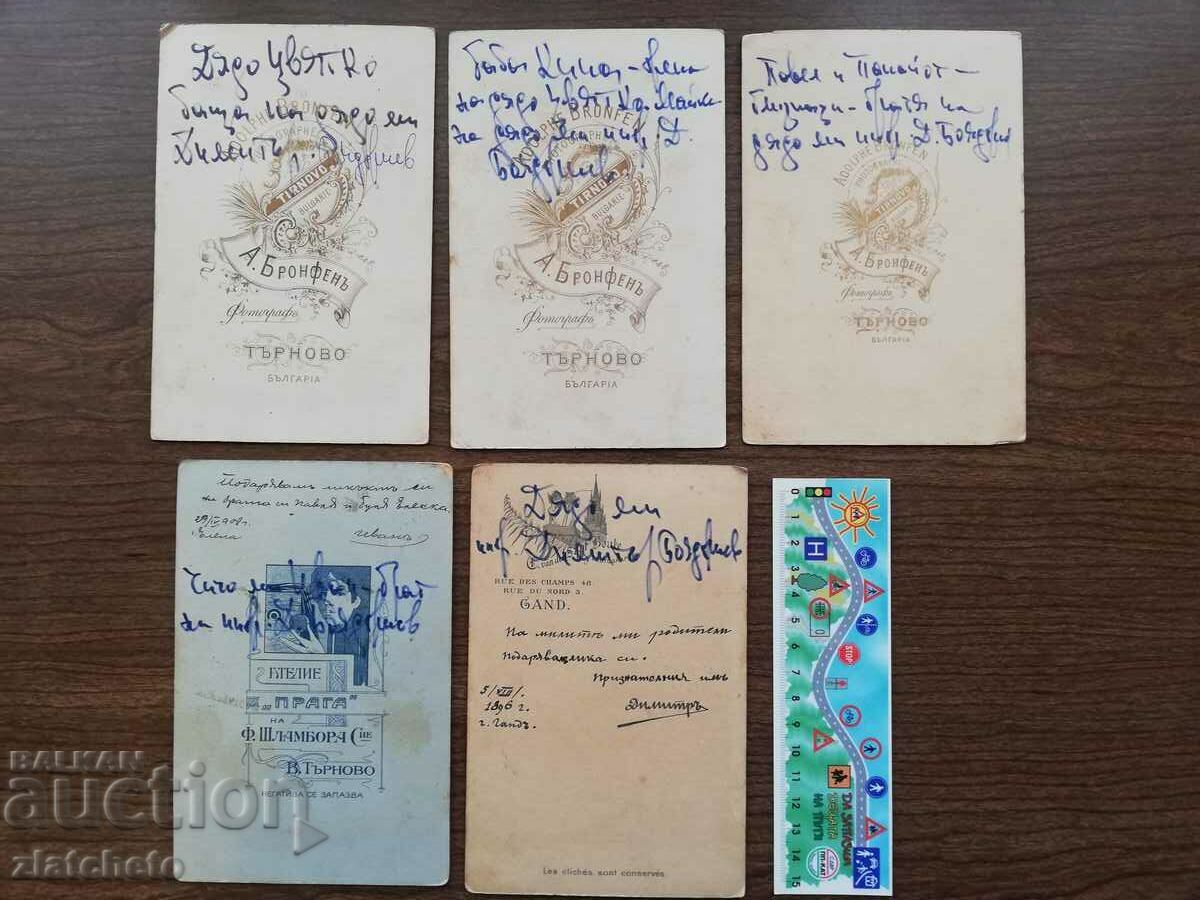 Дядо Цвятко
баща на дядо ми
Димитър Бояджиев
ADOLPHE BRONFEN
PHOTOGRAPHE
TIRNOVO
BULGARIE
А. Бронфенъ
Фотографъ
ТЪРНОВО
БЪЛГАРІЯ
баба
на дядо Цвятко. Майка
на дядо ми инж. Д.
Бояджиев
ADOLPHE BRONFEN
TIRNOVO
BULGARIE
А. Бронфенъ
Фотографъ
ТЪРНОВО
БЪЛГАРІЯ
Павел и Панайот -
близнаци - братя на
дядо ми инж. Д. Бояджиев
ADOLPHE BRONFEN
TIRNOVO
А. Бронфенъ
Фотографъ
ТЪРНОВО
БЪЛГАРІЯ
Подарявамъ ликътъ си
на брата си Павла и буля
29/IV 908 г.
Елена
Иванъ
Чичо ми Иван - брат
на инж. Д. Бояджиев.
АТЕЛИЕ
„ПРАГА"
НА
Ф. ШЛАМБОРА Cⁱᵉ
В. ТЪРНОВО
НЕГАТИВА СЕ ЗАПАЗВА
Дядо ми
инж. Димитър Бояджиев
RUE DES CHAMPS 46
RUE DU NORD 3.
GAND.
На милитѣ ми родители
подарявам лика си.
Признателния имъ
5/VIII/.
1896 г.
г. Гандъ.
Димитръ
Les clichés sont conservés.
0 1 2 3 4 5 6 7 8 9 10 11 12 13 14 15
H
STOP
ДА ЗАПАЗИМ
ДЕЦАТА
НА ПЪТЯ
BALKAN
auction
zlatcheto